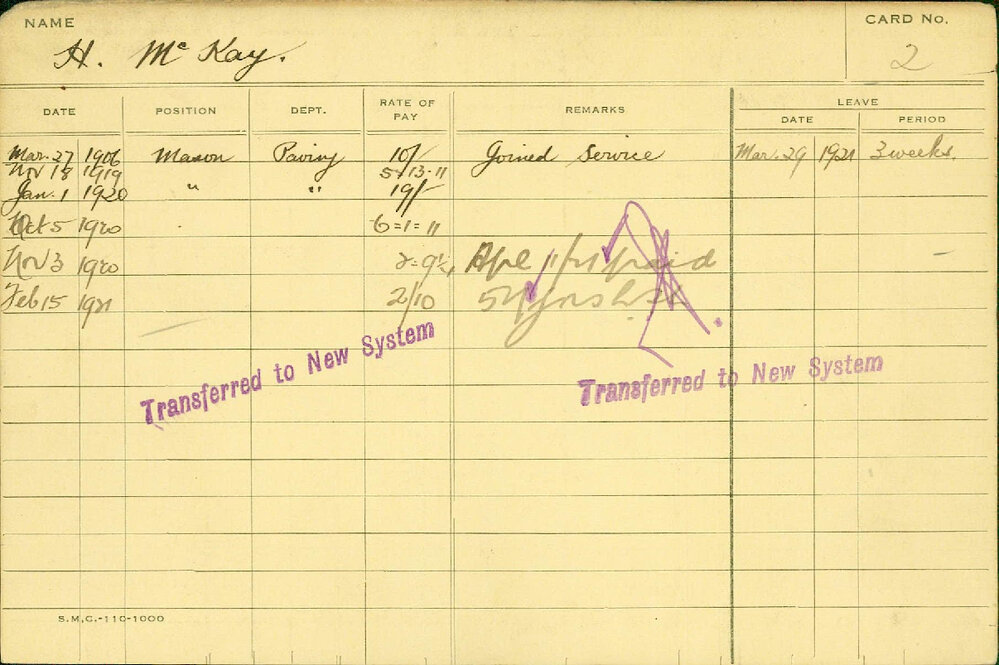 NAME
CARD No.
H. McKay.
2
DATE POSITION DEPT. RATE OF PAY REMARKS LEAVE
DATE PERIOD
Mar. 27 1906 Mason Paving 10/ Joined Service Mar. 29 1921 3 weeks.
Nov 18 1919 5-13-11
Jan. 1 1920 " " 19/-
Oct 5 1920 6=1=11
Nov 3 1920 2=9¼ Apl 11/21 paid
Feb 15 1921 2/10
Transferred to New System
Transferred to New System
S.M.C.-110-1000